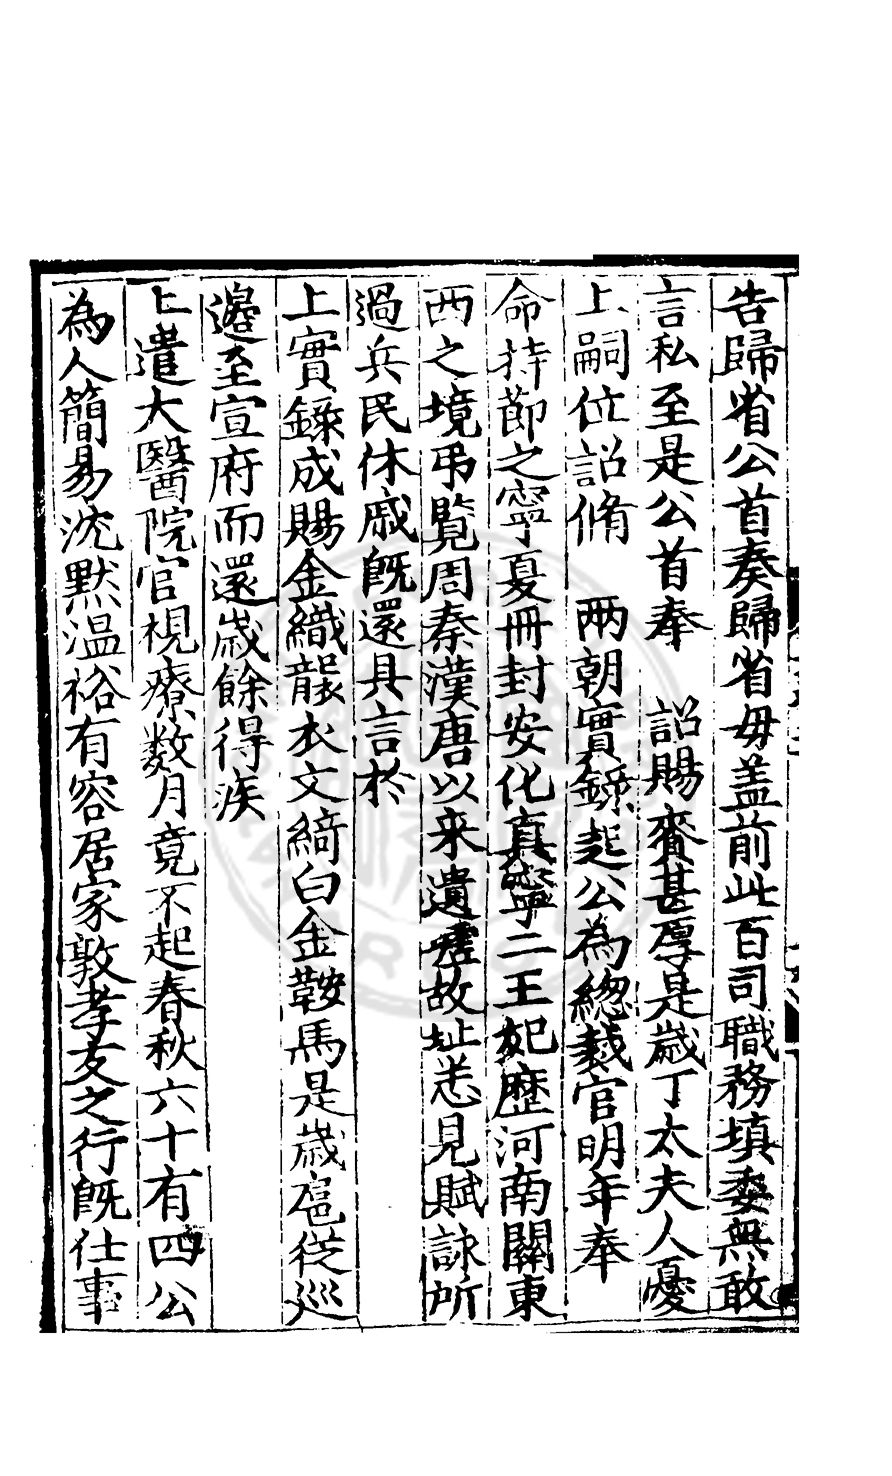 告歸省公首奏歸省毋盖前此百司職務填委無敢
言私至是公首奉　詔賜賚甚厚是歲丁太夫人憂
上嗣位詔脩　兩朝實錄起公為總裁官明年奉
命持節之寧夏冊封安化真寧二王妃歷河南關東
西之境弔覧周秦漢唐以来遺墟故址悉見賦詠所
過兵民休戚旣還具言於
上實錄成賜金織襲衣文綺白金鞍馬是歲扈從巡
邊至宣府而還歲餘得疾
上遣大醫院官視療数月竟不起春秋六十有四公
為人簡易沈默温裕有容居家敦孝友之行旣仕事